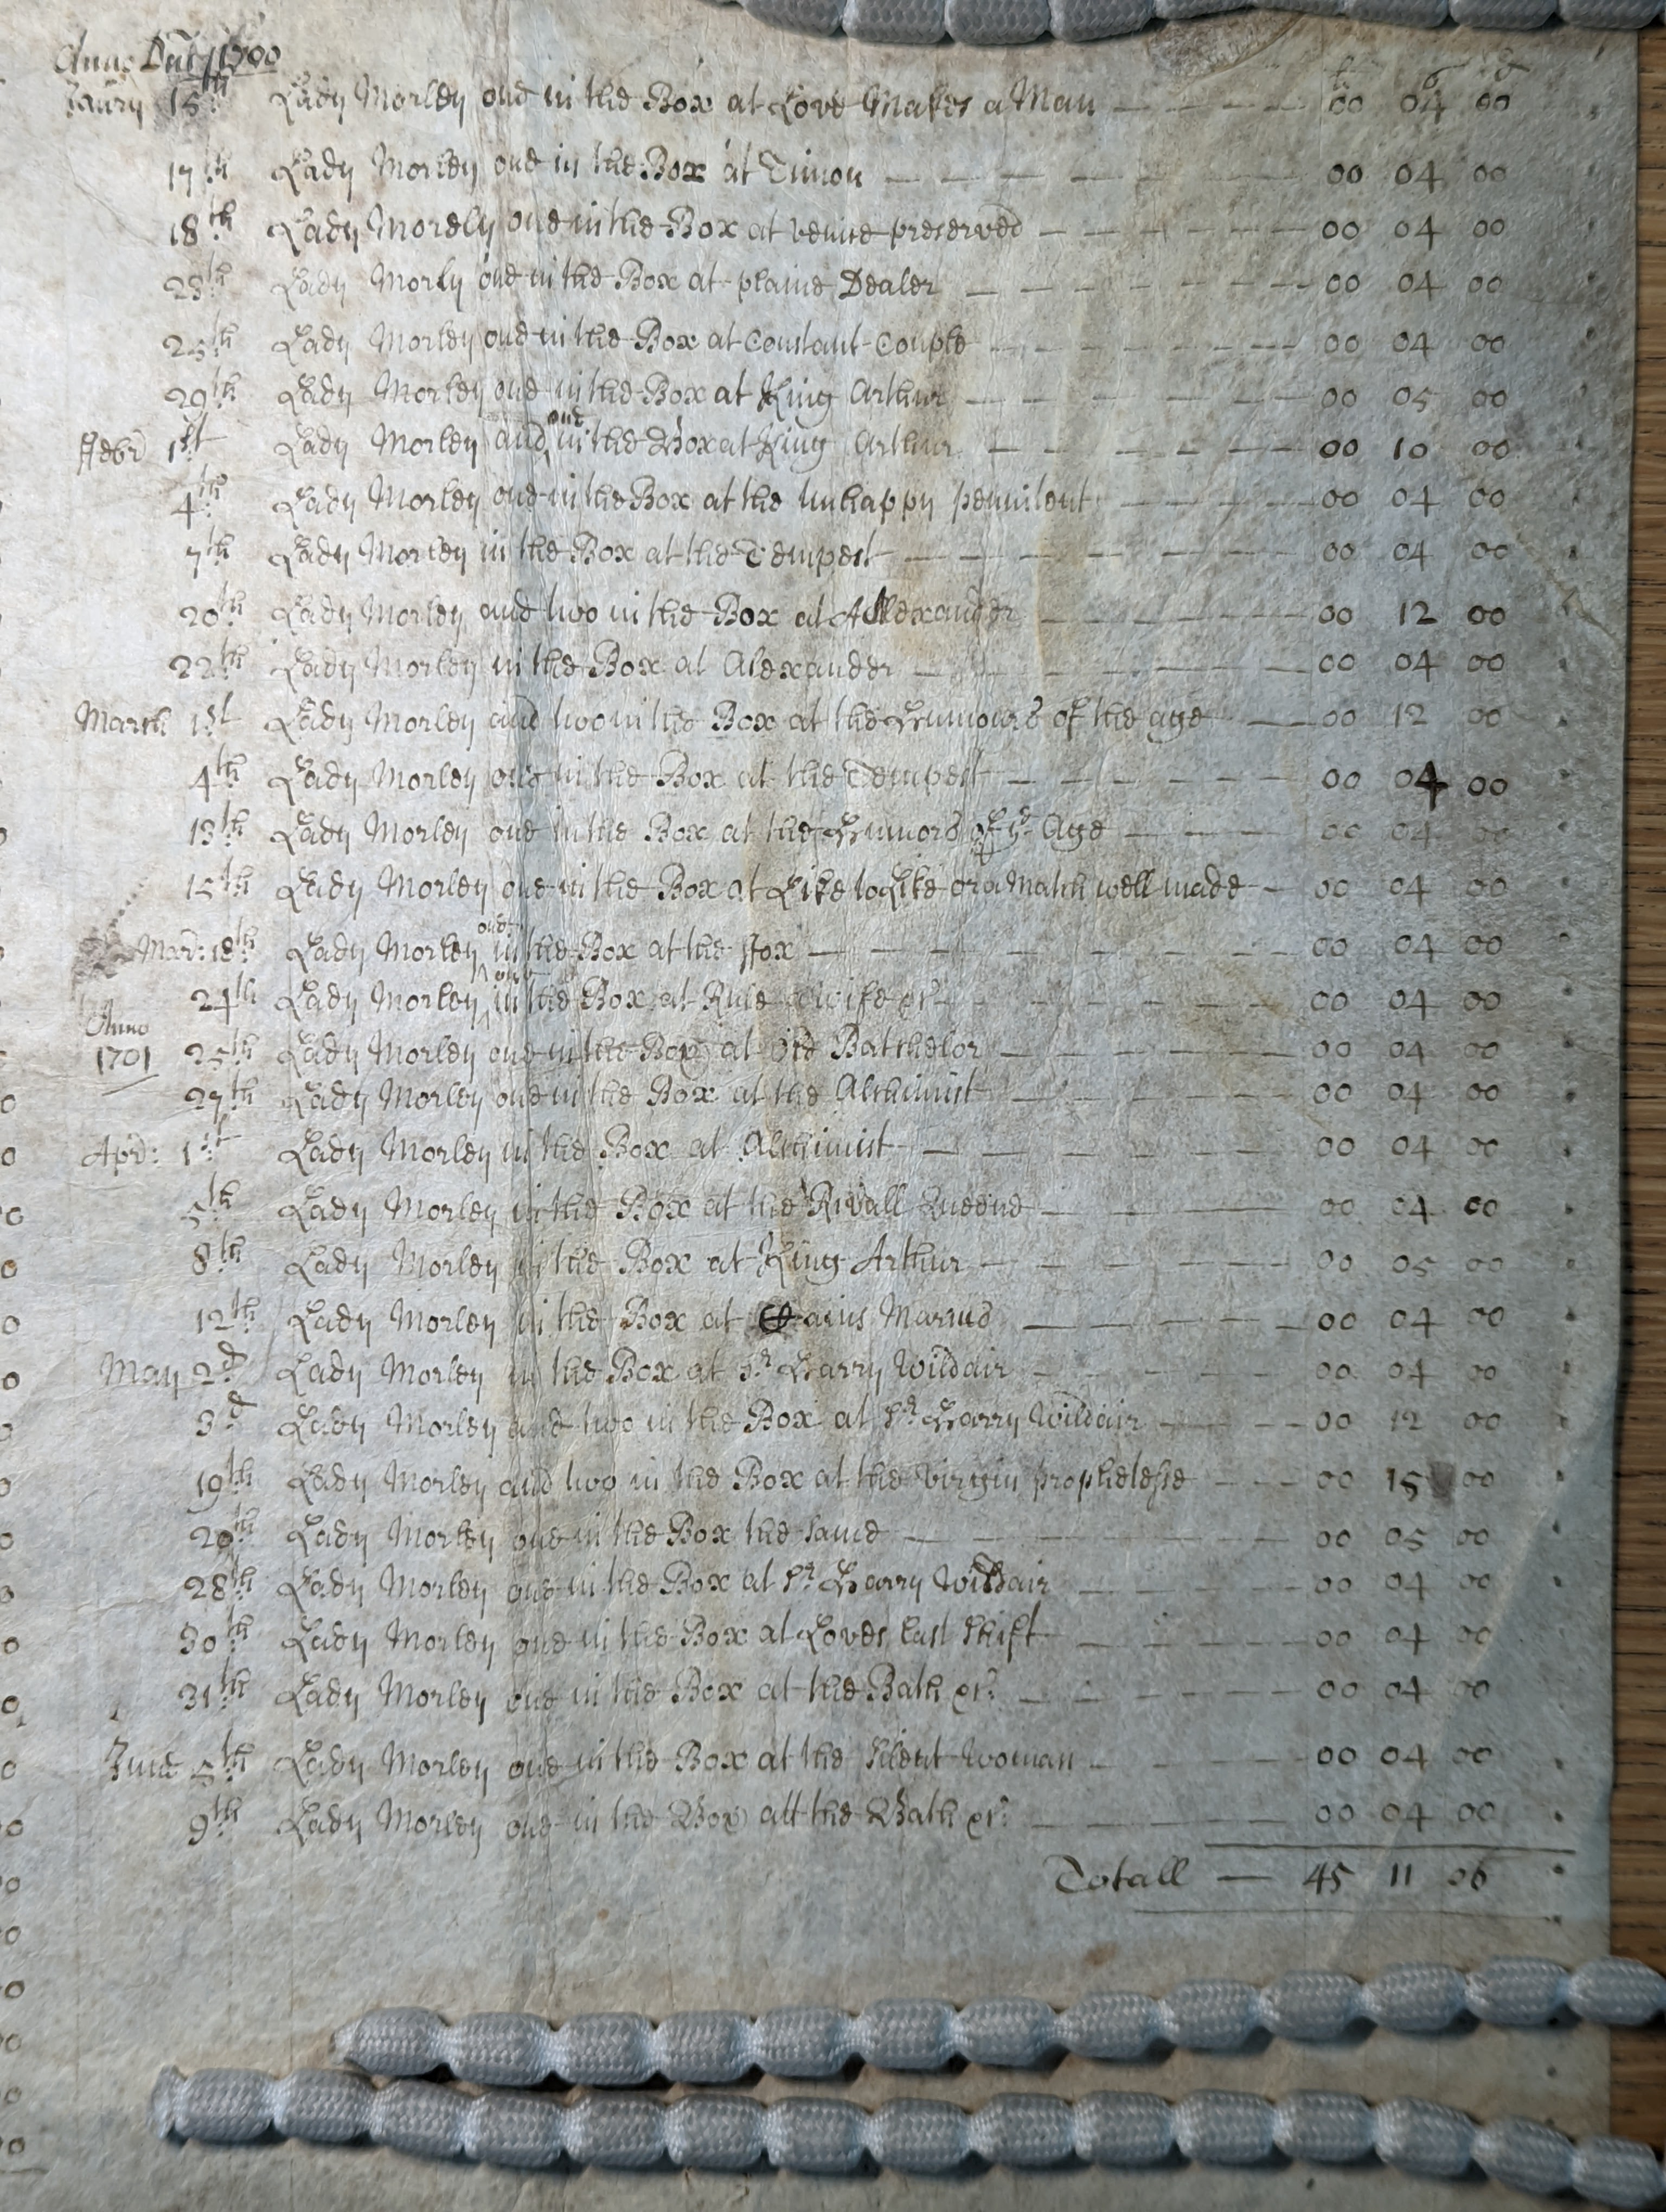 Anno Dm̄ 1700
£ s d
Janry 15th Lady Morley one in the Box at Love Makes a Man 00 04 00
17th Lady Morley one in the Box at Timon 00 04 00
18th Lady Morely one in the Box at venice preserved 00 04 00
23th Lady Morly one in the Box at plaine Dealer 00 04 00
25th Lady Morley one in the Box at Constant Couple 00 04 00
29th Lady Morley one in the Box at King Arthur 00 05 00
ffebr 1st Lady Morley and one in the Box at King Arthur 00 10 00
4th Lady Morley one in the Box at the unhappy penitent 00 04 00
7th Lady Morley in the Box at the Tempest 00 04 00
20th Lady Morley and two in the Box at Allexander 00 12 00
22th Lady Morley in the Box at Alexander 00 04 00
March 1st Lady Morley and two in the Box at the Humours of the age 00 12 00
4th Lady Morley one in the Box at the Tempest 00 04 00
13th Lady Morley one in the Box at the Humors of ye Age 00 04 00
15th Lady Morley one in the Box at Like to Like or a Match well made 00 04 00
Mar: 18th Lady Morley one in the Box at the ffox 00 04 00
24th Lady Morley one in the Box at Rule a wife &c 00 04 00
Anno
1701 25th Lady Morley one in the Box at old Batchelor 00 04 00
27th Lady Morley one in the Box at the Alchimist 00 04 00
Apr: 1st Lady Morley in the Box at Alchimist 00 04 00
5th Lady Morley in the Box at the Rivall Queene 00 04 00
8th Lady Morley in the Box at King Arthur 00 05 00
12th Lady Morley in the Box at Caius Marius 00 04 00
May 2d Lady Morley in the Box at Sr Harry Wildair 00 04 00
3d Lady Morley and two in the Box at Sr Harry Wildair 00 12 00
19th Lady Morley and two in the Box at the virgin prophetesse 00 15 00
20th Lady Morley one in the Box the same 00 05 00
28th Lady Morley one in the Box at Sr Harry Wildair 00 04 00
30th Lady Morley one in the Box at Loves last Shift 00 04 00
31th Lady Morley one in the Box at the Bath &c 00 04 00
June 5th Lady Morley one in the Box at the Silent Woman 00 04 00
9th Lady Morley one in the Box att the Bath &c 00 04 00
Totall 45 11 06